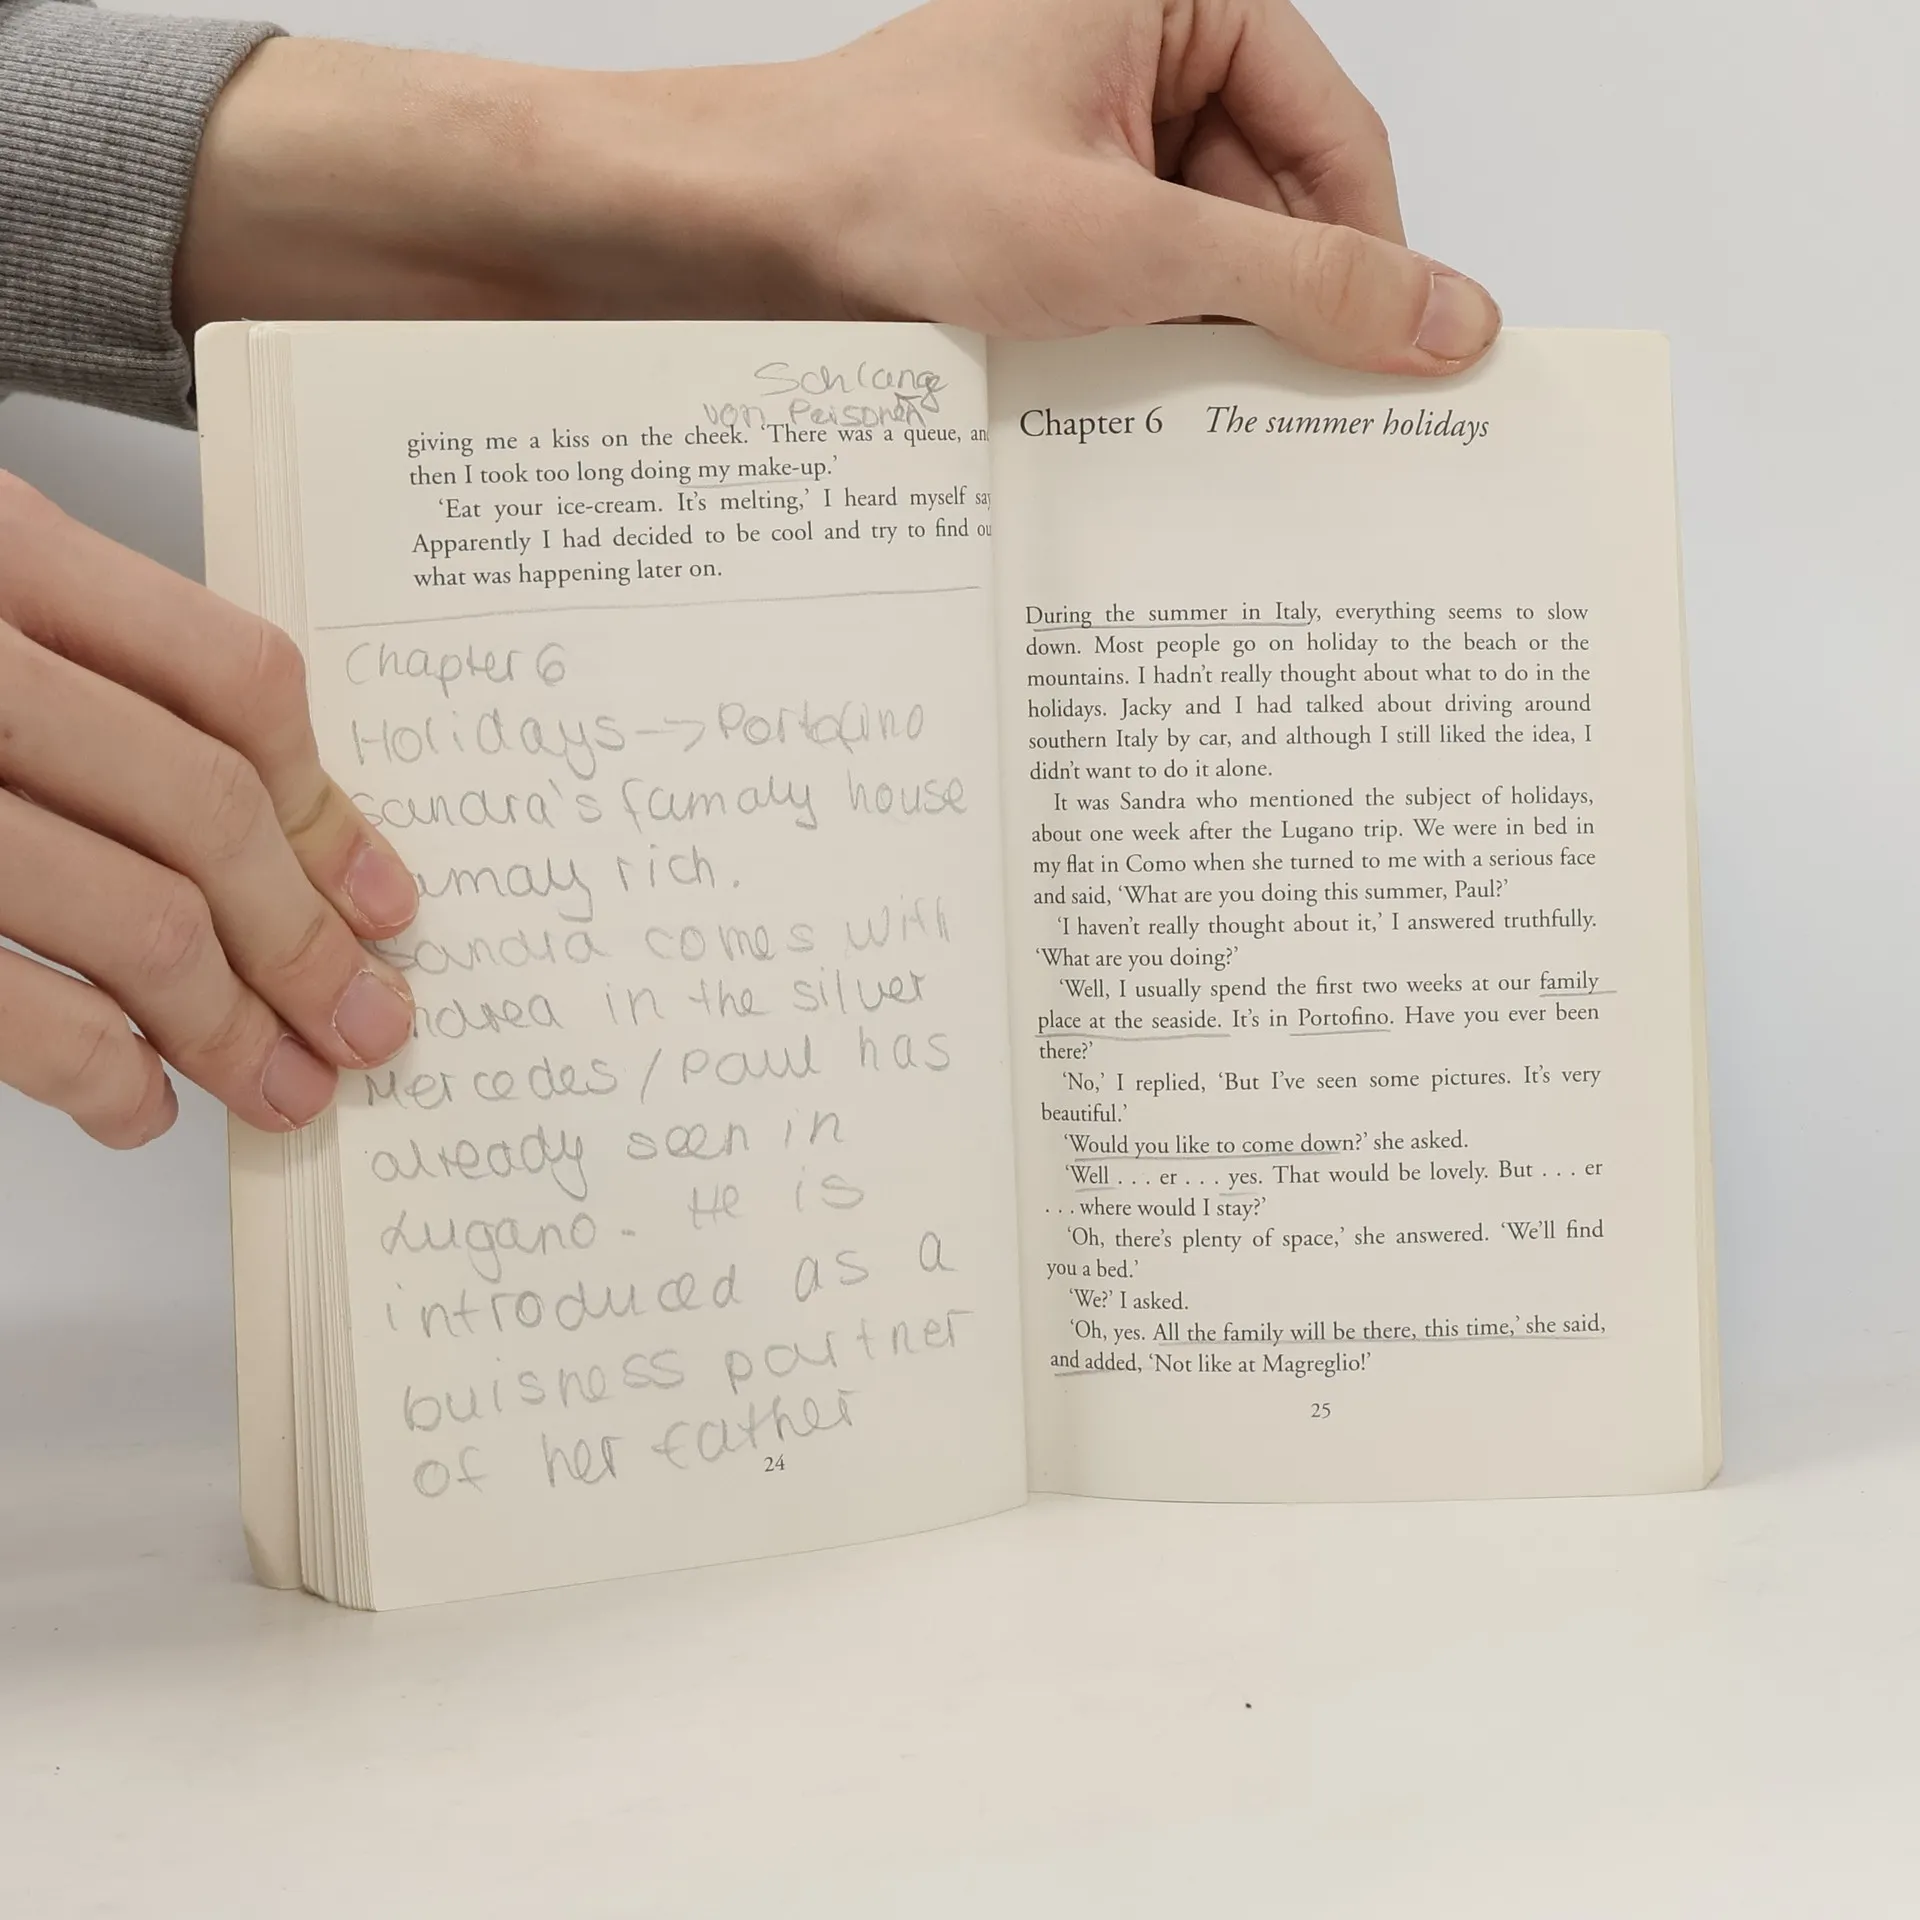 Schlange
von Personen
giving me a kiss on the cheek. ‘There was a queue, an
then I took too long doing my make-up.’
‘Eat your ice-cream. It’s melting,’ I heard myself say
Apparently I had decided to be cool and try to find ou
what was happening later on.
Chapter 6
Holidays -> Portofino
Sandra's famaly house
amaly rich.
Sandra comes with
ndrea in the silver
Mercedes / paul has
already seen in
Lugano - He is
introduced as a
buisness partner
of her father
24
Chapter 6 The summer holidays
During the summer in Italy, everything seems to slow
down. Most people go on holiday to the beach or the
mountains. I hadn’t really thought about what to do in the
holidays. Jacky and I had talked about driving around
southern Italy by car, and although I still liked the idea, I
didn’t want to do it alone.
It was Sandra who mentioned the subject of holidays,
about one week after the Lugano trip. We were in bed in
my flat in Como when she turned to me with a serious face
and said, ‘What are you doing this summer, Paul?’
‘I haven’t really thought about it,’ I answered truthfully.
‘What are you doing?’
‘Well, I usually spend the first two weeks at our family
place at the seaside. It’s in Portofino. Have you ever been
there?’
‘No,’ I replied, ‘But I’ve seen some pictures. It’s very
beautiful.’
‘Would you like to come down?’ she asked.
‘Well . . . er . . . yes. That would be lovely. But . . . er
. . . where would I stay?’
‘Oh, there’s plenty of space,’ she answered. ‘We’ll find
you a bed.’
‘We?’ I asked.
‘Oh, yes. All the family will be there, this time,’ she said,
and added, ‘Not like at Magreglio!’
25